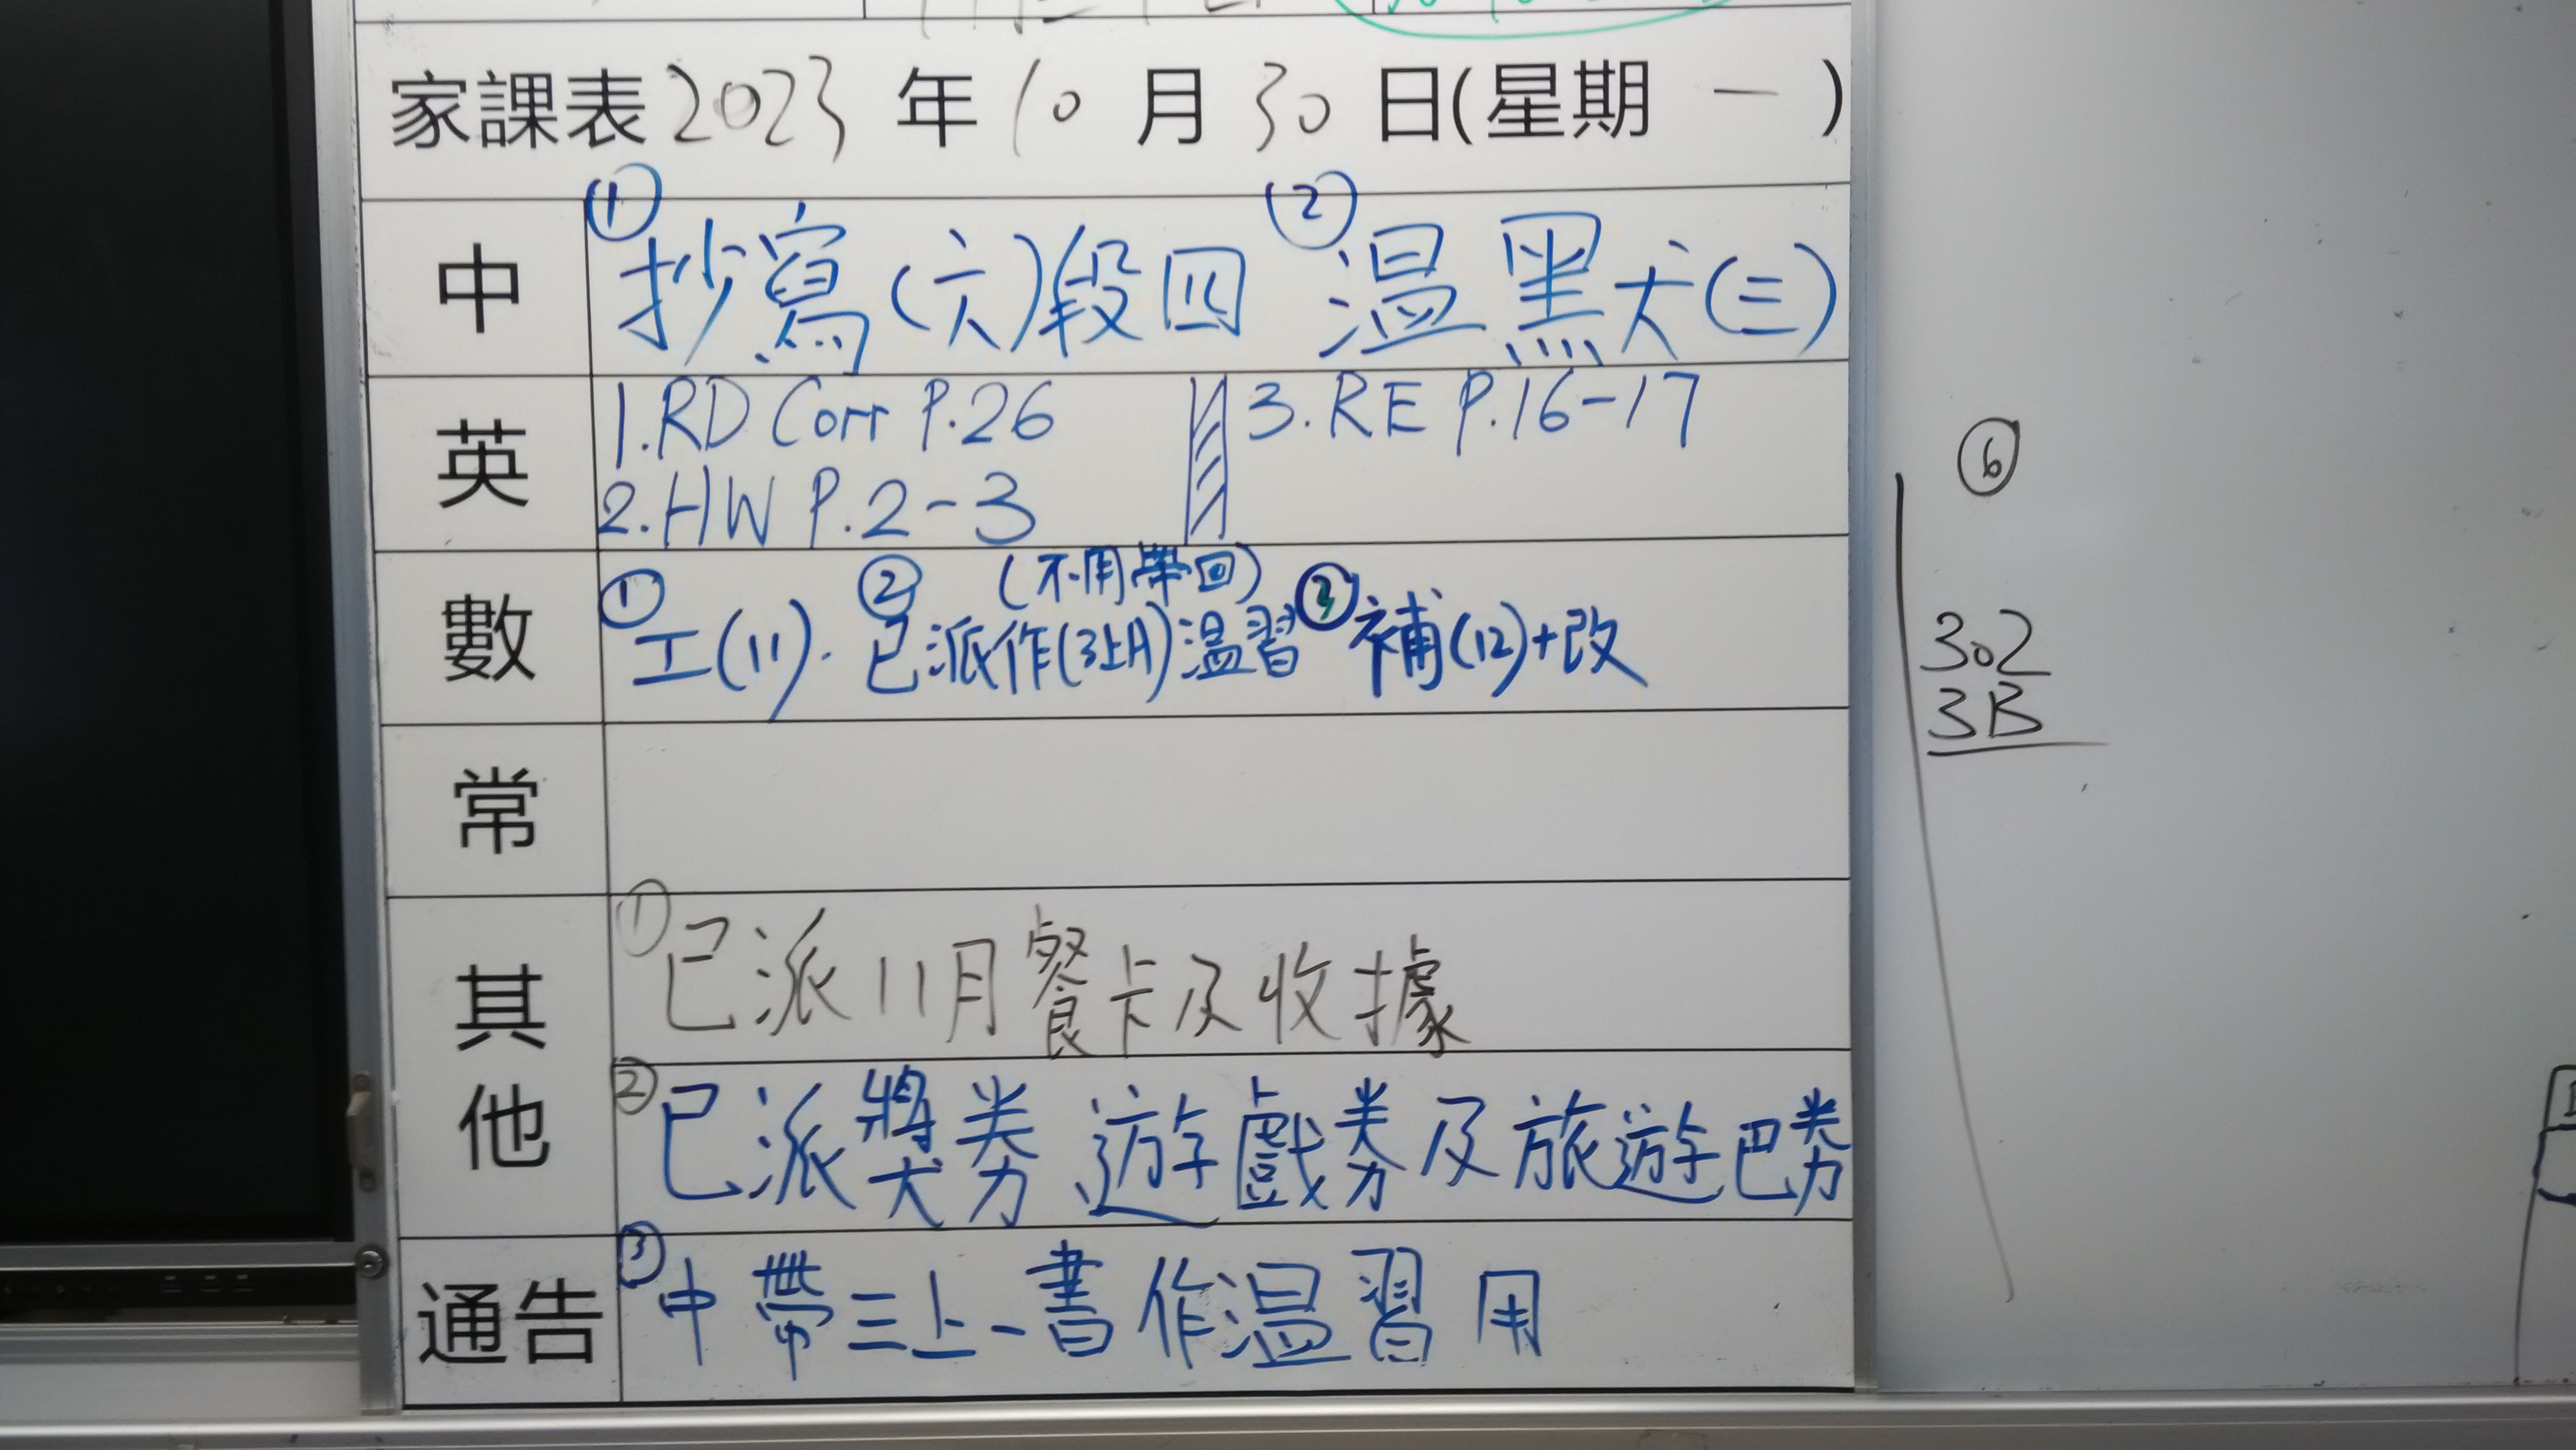 家課表 2023 年 10 月 30 日(星期 一 )
中 ①抄寫(六)段四 ②溫黑犬(三)
英 1.RD Corr P.26 3.RE P.16-17
2.HW P.2-3
(不用帶回)
數 ①工(11). ②已派作(3上A)溫習 ③補(12)+改
常
其他 ①已派11月餐卡及收據
②已派獎券 遊戲券及旅遊巴券
通告 ③中帶三上一書作溫習用
⑥
302
3B